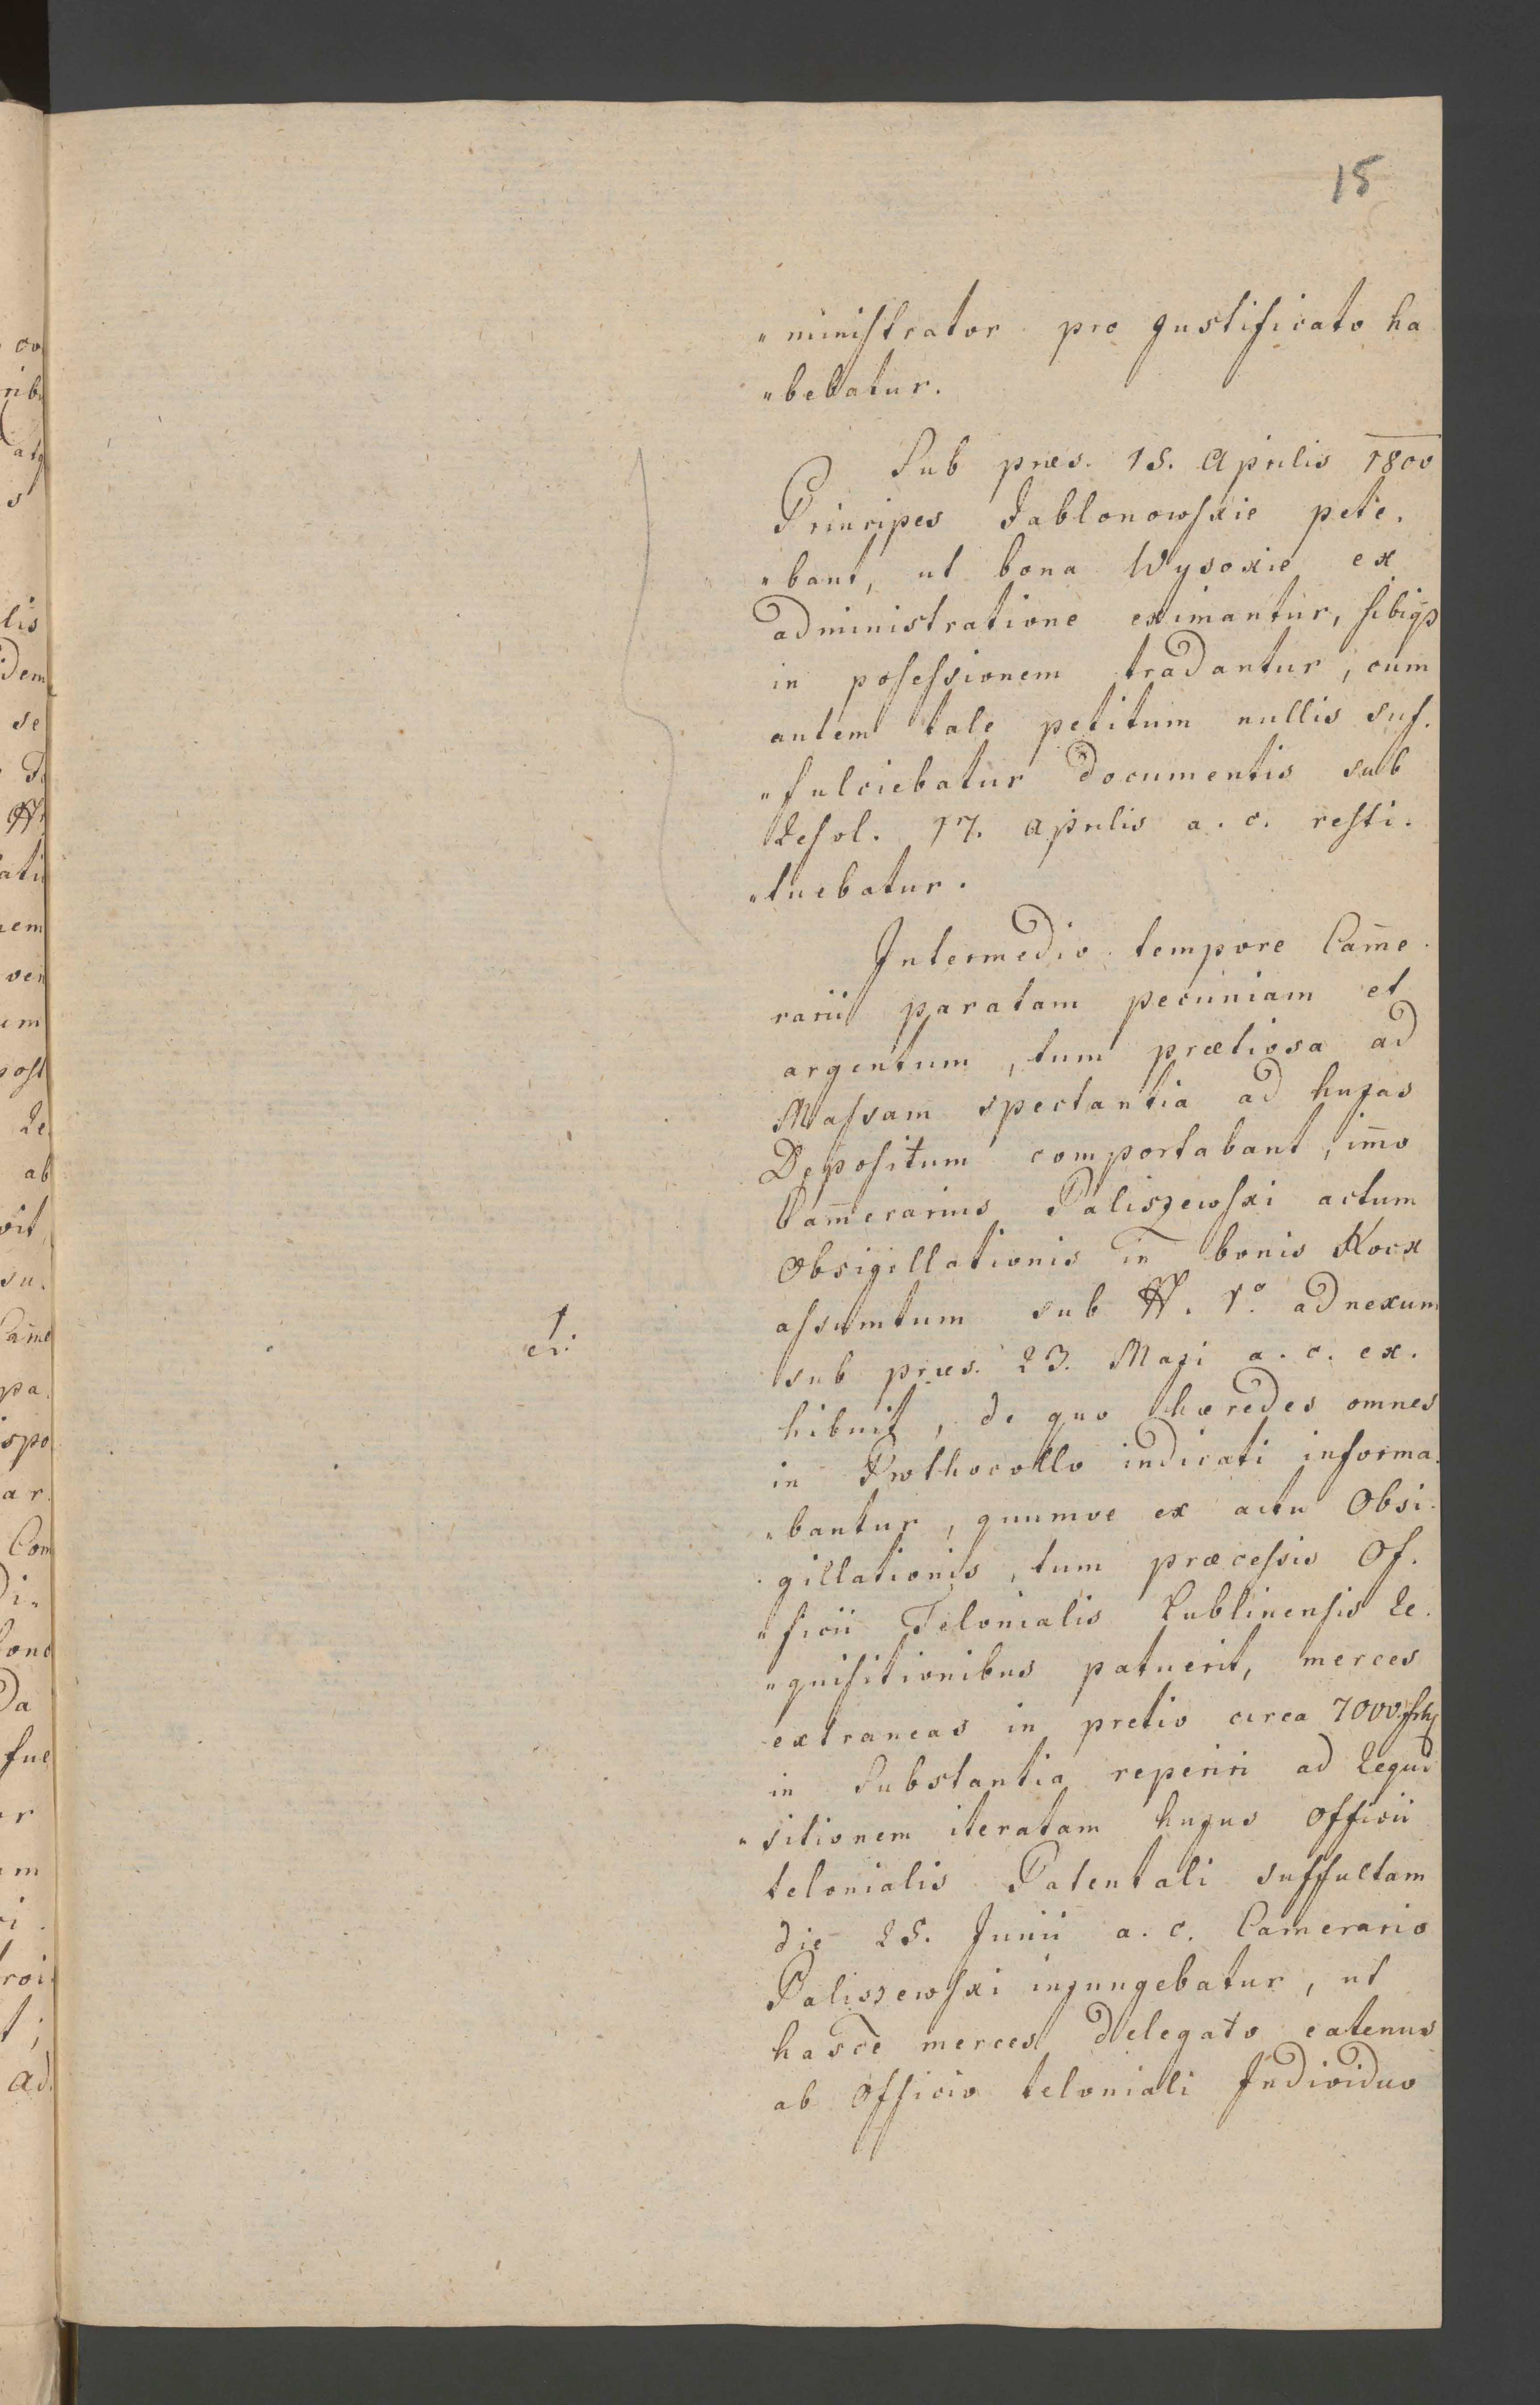 15
"ministrator pro justificato ha
"bebatur.
Sub præs. 15. Aprilis 1800
Principes Jablonowskie pete.
"bant, ut bona Wysokie ex
administratione eximantur, sibiqȝ
in posessionem tradantur, cum
autem tale petitum nullis suf.
"fulciebatur documentis sub
Resol. 17. Aprilis a. c. resti.
"tuebatur.
Intermedio tempore Cam̄e.
rarii paratam pecuniam et
argentum, tum prætiosa ad
Massam spectantia ad hujas
Depositum comportabant, im̄o
Cam̄erarius Paliszewski actum
Obsigillationis in bonis Kock
assumtum sub N. 1º adnexum
1
sub præs. 23. Maji a. c. ex.
hibuit, de quo hæredes omnes
in Prothocollo indicati informa.
"bantur, quumve ex actu Obsi.
gillationis, tum præcessis Of.
"ficii Telonialis Lublinensis Re.
"quisitionibus patuerit, merces
extraneas in pretio circa 7000
in Substantia reperiri ad Requi
"sitionem iteratam hujus Officii
telonialis Patentali suffultam
die 25. Junii a. c. Camerario
Paliszewski injungebatur, ut
hasce merces delegato eatenus
ab Officio teloniali Individuo